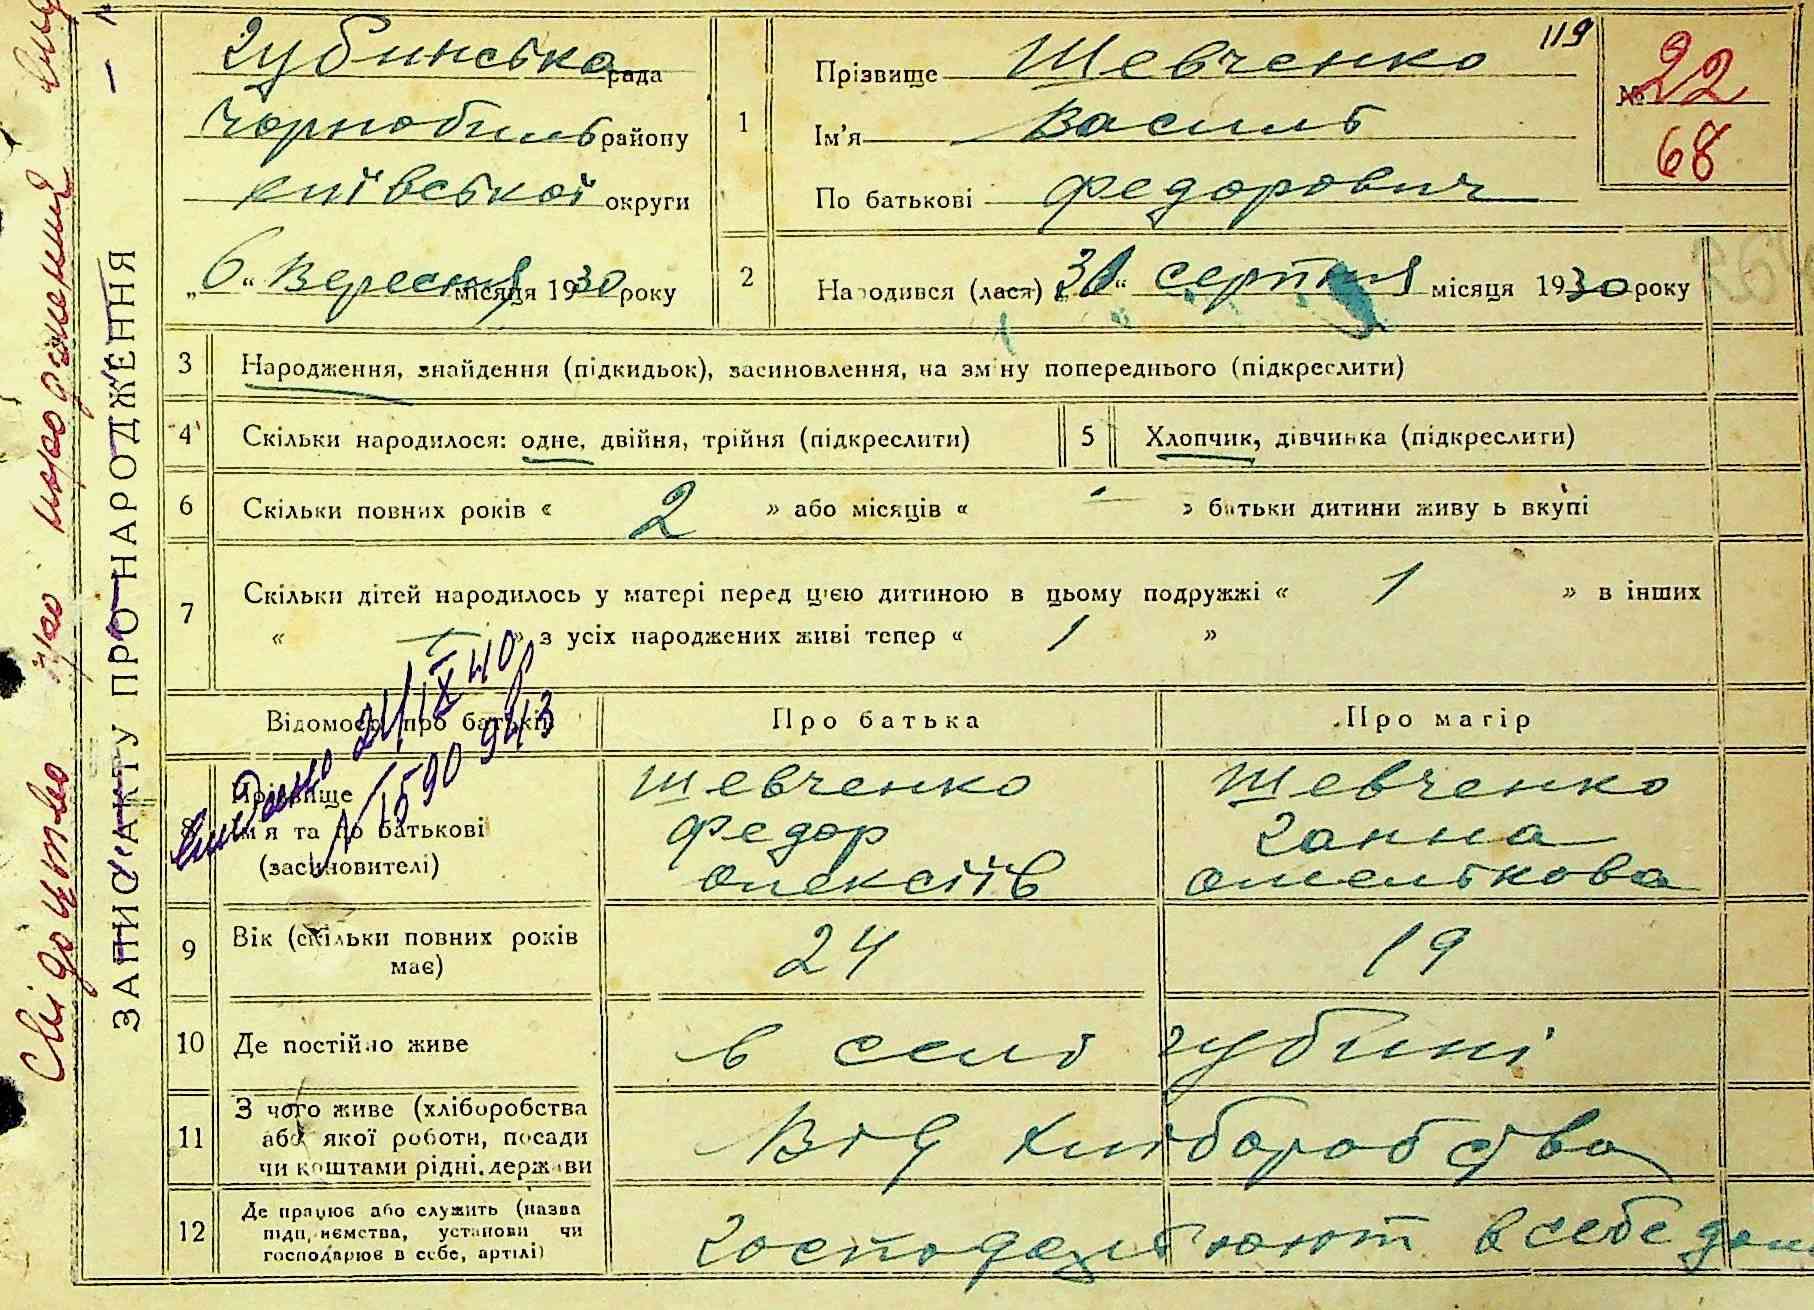 119
Губинська рада
Чорнобиль району
Київської округи
„6“ Вересня місяця 1930 року
1
Прізвище Шевченко
Ім'я Василь
По батькові Федорович
№ 22
68
2 Народився (лася) „ “ серпня місяця 1930 року
ЗАПИС АКТУ ПРО НАРОДЖЕННЯ
Свідоцтво про народження
3 Народження, знайдення (підкидьок), засиновлення, на зміну попереднього (підкреслити)
4 Скільки народилося: одне, двійня, трійня (підкреслити)
5 Хлопчик, дівчинка (підкреслити)
6 Скільки повних років « 2 » або місяців « — » батьки дитини живуть вкупі
7 Скільки дітей народилось у матері перед цією дитиною в цьому подружжі « 1 » в інших
« — » з усіх народжених живі тепер « 1 »
Відомості про батьків
Про батька
Про матір
8 Прізвище
ім'я та по батькові
(засиновителі)
Шевченко
Федор
Олексіїв
Шевченко
Ганна
Омелькова
9 Вік (скільки повних років
має)
24
19
10 Де постійно живе
в селі Губині
11 З чого живе (хліборобства
або якої роботи, посади
чи коштами рідні, держави
Від хліборобства
12 Де працює або служить (назва
підприємства, установи чи
господарює в себе, артілі)
господарюют в себе дома